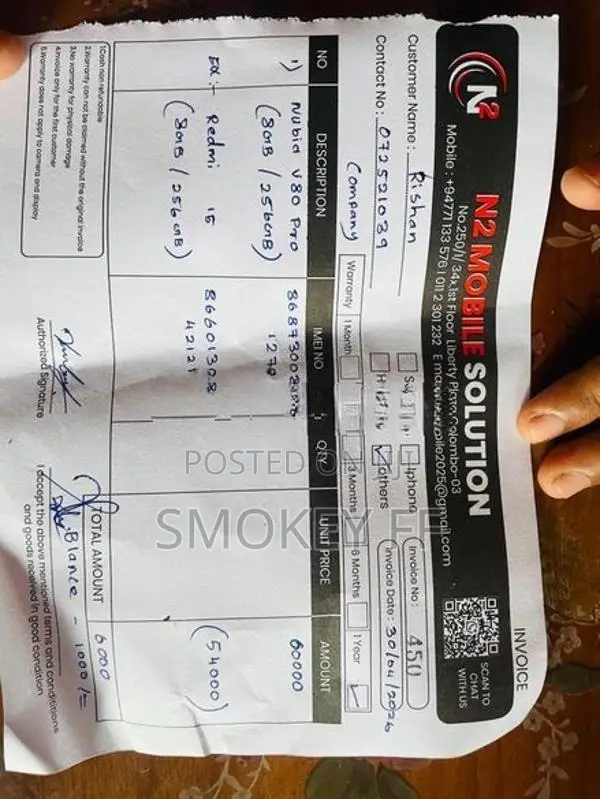 INVOICE
N2
N2 MOBILE SOLUTION
No.250/1/ 34x,1st Floor, Liberty Plaza, Colombo-03
Mobile : +94771 133 576 | 011 2 301 232 E
2025@gmail.com
SCAN TO
CHAT
WITH US
Customer Name : Rishan
Contact No : 072521039
Iphone
others
Invoice No : 450
Invoice Date : 30/04/2026
Company
Warranty 1 Month 3 Months 6 Months 1 Year
NO DESCRIPTION IMEI NO QTY UNIT PRICE AMOUNT
1) Nubia V80 Pro 60000
(8GB / 256GB) 1270
EX:- Redmi 15 (54000)
(8GB / 256GB) 42121
TOTAL AMOUNT 6000
Blance - 1000/=
1.Cash non refundable
2.Warranty can not be claimed without the original invoice
3.No warranty for physical damage
4.Invoice only for the first customer
5.Warranty does not apply to camera and display
Authorized Signature
I accept the above mentioned terms and conditions
and goods received in good condition
POSTED ON
SMOKEY FF